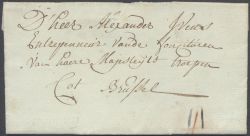 D'heer Alexander
Entrepreneur vande
van haere Majesteyts troepen
Tot Brussel